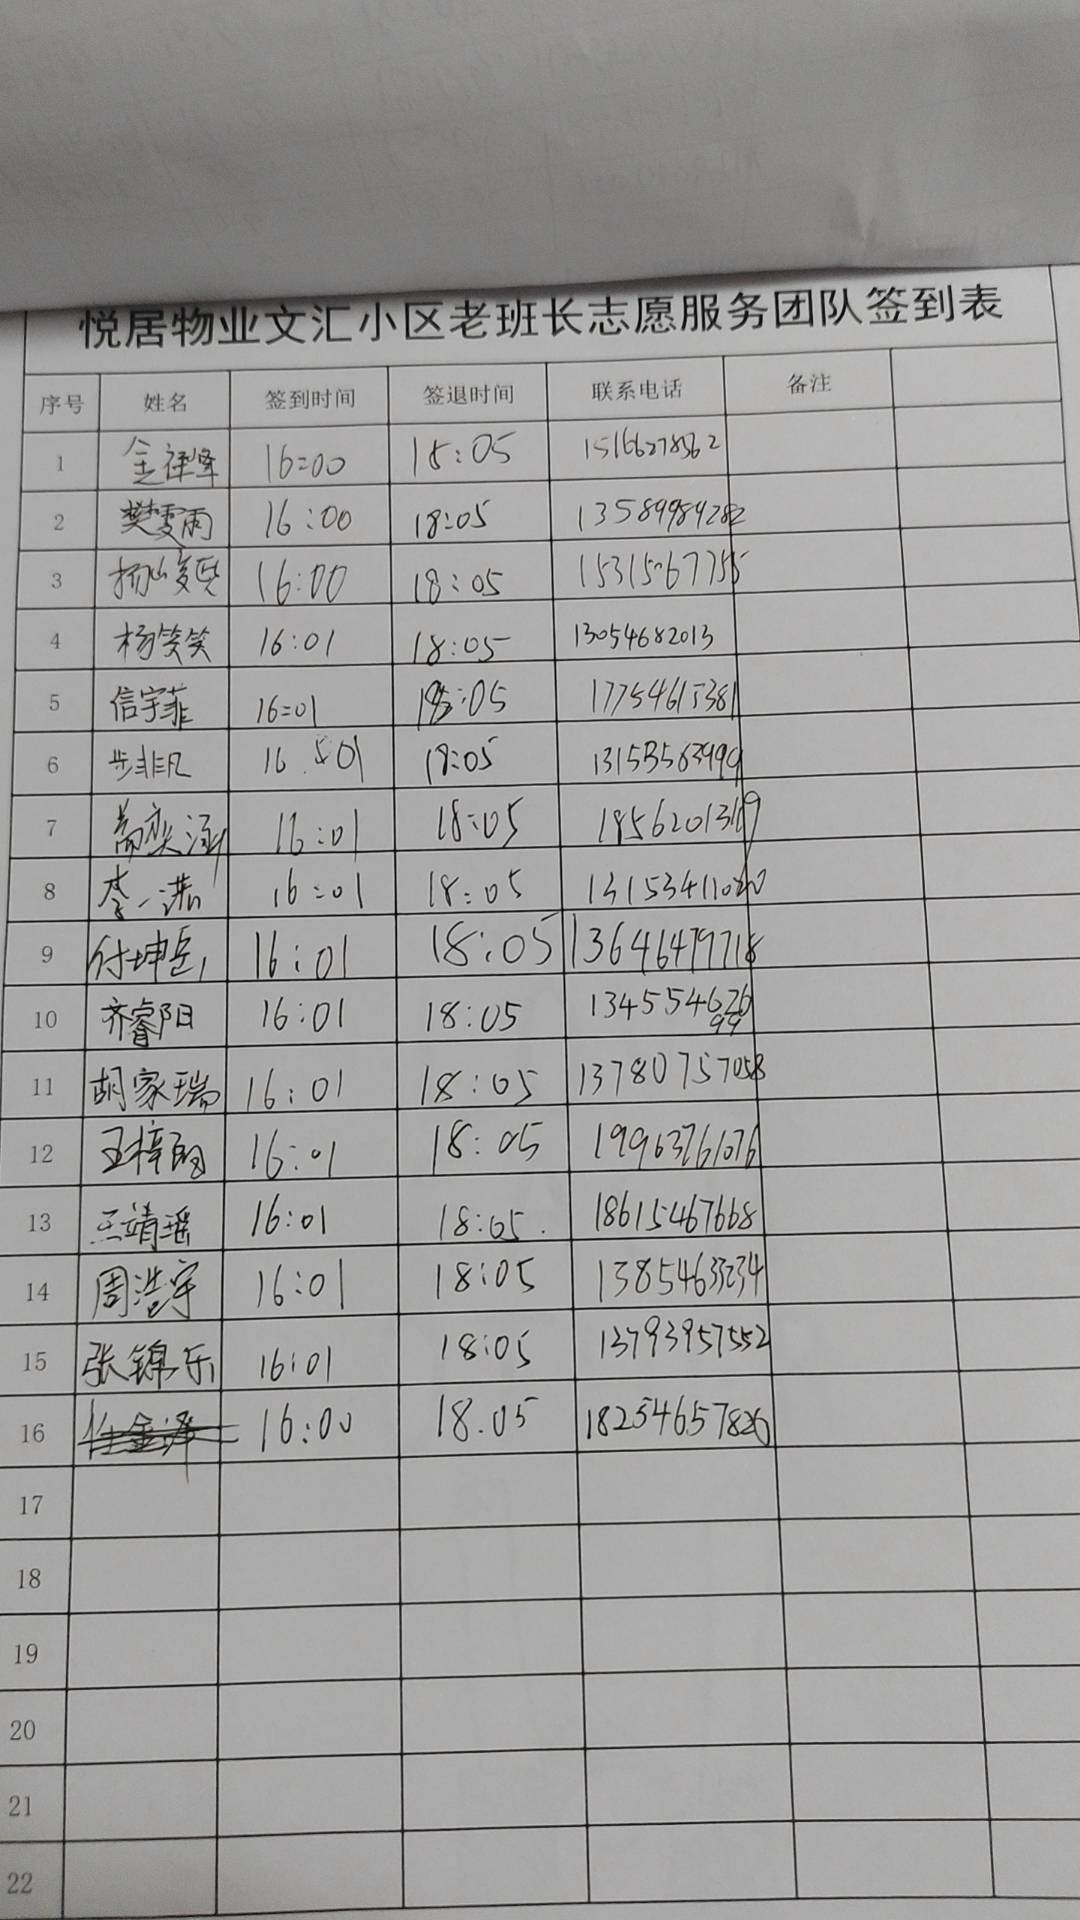 悦居物业文汇小区老班长志愿服务团队签到表
序号 姓名 签到时间 签退时间 联系电话 备注
1 金祥峰 16:00 18:05 15166278362
2 樊雯雨 16:00 18:05 13589984282
3 杨 16:00 18:05 15315067755
4 杨笑笑 16:01 18:05 13054682013
5 信宇菲 16:01 18:05 17754615381
6 步非凡 16:01 18:05 13153563999
7 奕涵 16:01 18:05
8 李一诺 16:01 18:05
9 付坤岳 16:01 18:05 13646479718
10 齐睿阳 16:01 18:05
11 胡家瑞 16:01 18:05 13780757058
12 王梓 16:01 18:05 19963761076
13 王靖瑶 16:01 18:05. 18615467668
14 周浩宇 16:01 18:05 13854633234
15 张锦乐 16:01 18:05 13793957552
16 任金泽 16:00 18.05 18254657820
17
18
19
20
21
22